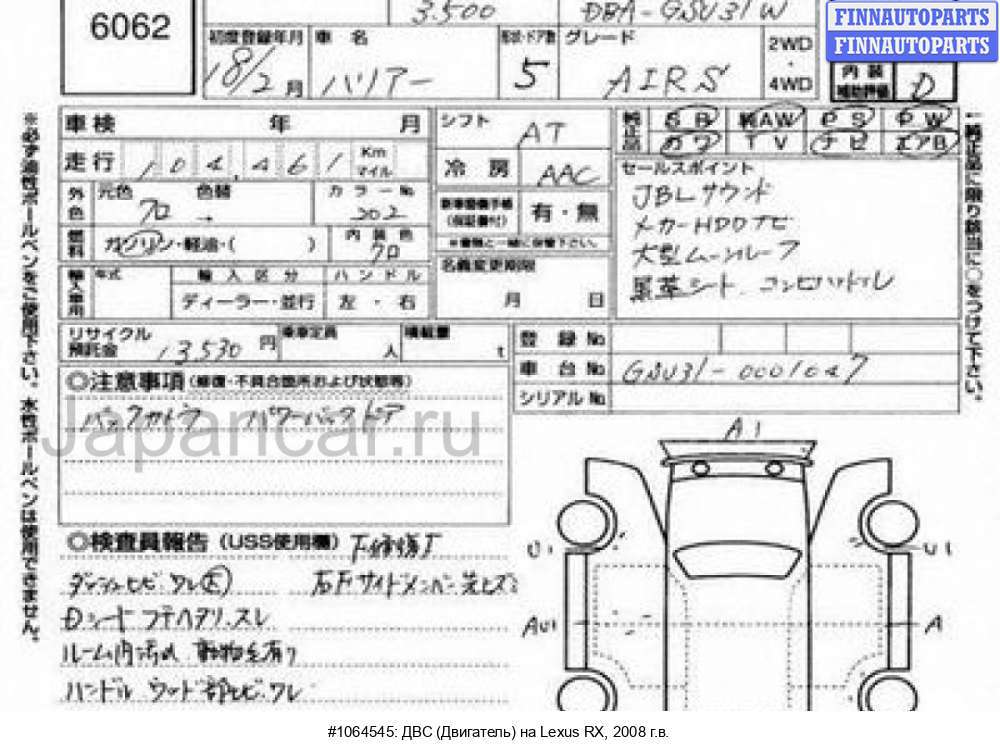 6062
3.500 DBA-GSU31W
FINNAUTOPARTS
FINNAUTOPARTS
初度登録年月 車 名 形状・ドア数 グレード 2WD ・ 4WD
18/2月 ハリアー 5 AIRS
内 装 補助評価 D
※必ず油性ボールペンをご使用下さい。水性ボールペンは使用できません。
車 検 年 月
走 行 104,461 Km マイル
外色 元色 色替 カラーNo
クロ → 202
燃料 ガソリン・軽油・( ) 内 装 色 クロ
輸入車用 年式 輸 入 区 分 ハ ン ド ル
ディーラー・並行 左 ・ 右
シフト AT
冷 房 AAC
新車整備手帳 (保証書付) 有・無
※書類と一緒に保管下さい。
名義変更期限
月 日
純正品 SR 純AW PS PW
カワ TV ナビ エアB
セールスポイント
JBLサウンド
メーカーHDDナビ
大型ムーンルーフ
黒革シート. コンビハンドル
一純正品に限り該当に○をつけて下さい。
リサイクル預託金 13,530 円 乗車定員 人 積載量 t
登 録 No
車 台 No GSU31-0001047
シリアル No
◎注意事項(修復・不具合箇所および状態等)
バックカメラ パワーバックドア
Japancar.ru
◎検査員報告(USS使用欄)
ダッシュヒビ.ワレ大
右Fサイドメンバー
Dシート フチヘタリ.スレ
ルーム内汚れ 動物毛有り
ハンドル ウッド部ヒビ.ワレ
A1
U1 U1
AU1 A
#1064545: ДВС (Двигатель) на Lexus RX, 2008 г.в.